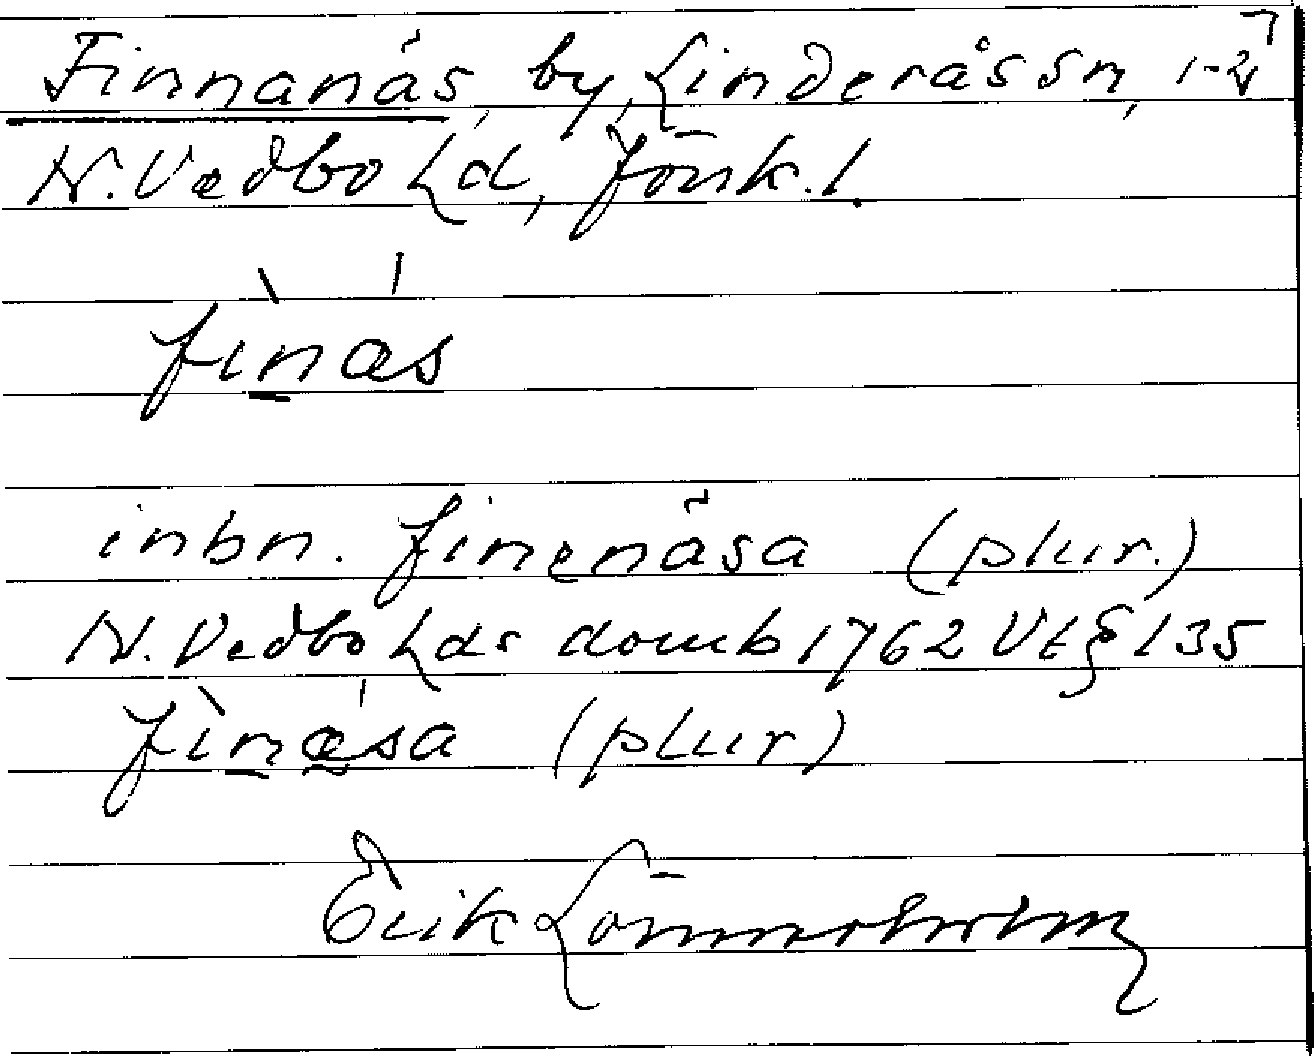 Finnanäs, by, Linderås sn, 1-2
N. Vedbo hd, Jönk. l.
fìnás
inbn. finenäsa (plur.)
N. Vedbo hds domb 1762 Vt § 135
fìnæ̀sa (plur)
Erik Lönnerholm